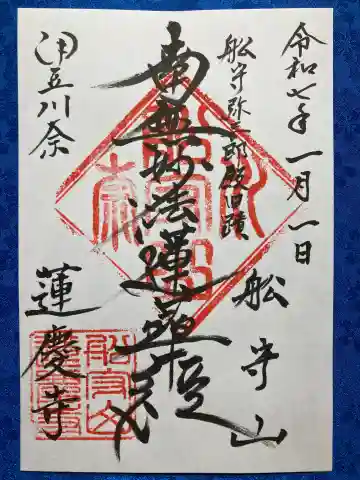 令和七年 一月一日
船守弥三郎殿旧蹟
船守山
南無妙法蓮華経
伊豆川奈
蓮慶寺